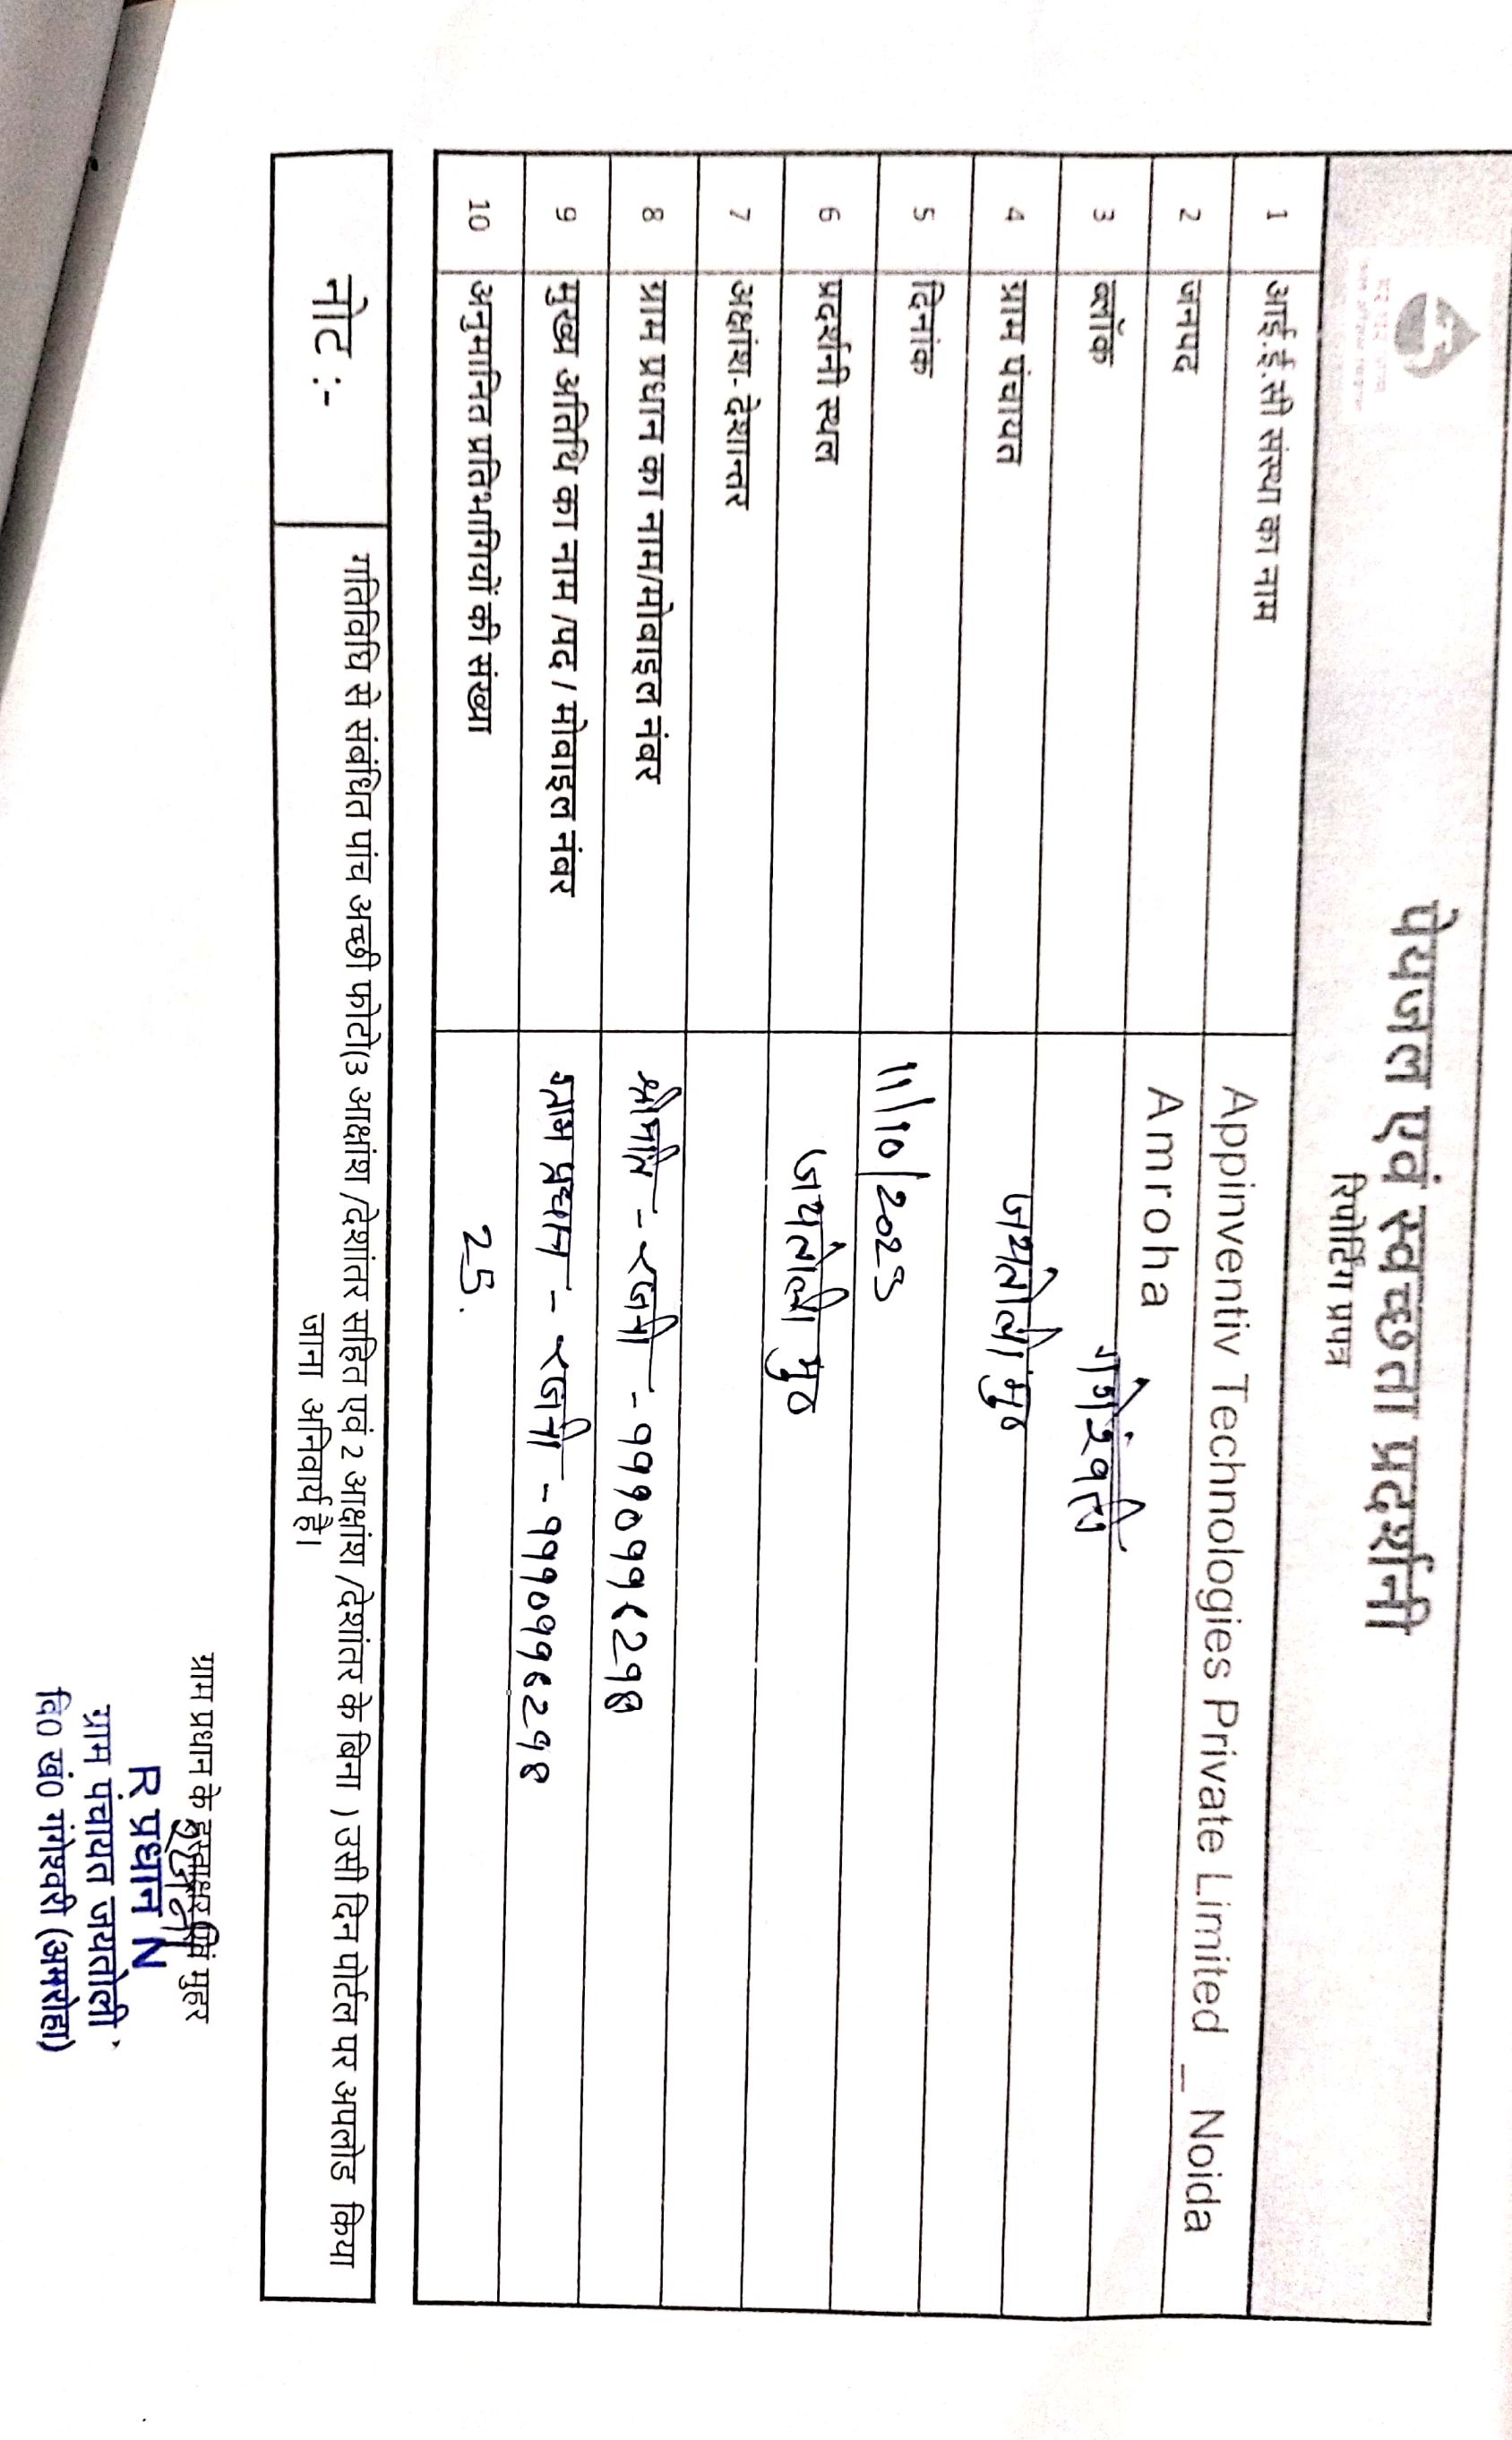 पेयजल एवं स्वच्छता प्रदर्शनी
रिपोर्टिंग प्रपत्र
1 आई.ई.सी संस्था का नाम Appinventiv Technologies Private Limited _ Noida
2 जनपद Amroha
3 ब्लॉक गंगेश्वरी
4 ग्राम पंचायत जयतोली मुठ
5 दिनांक 11/10/2023
6 प्रदर्शनी स्थल जयतोली मुठ
7 अक्षांश-देशान्तर
8 ग्राम प्रधान का नाम/मोबाइल नंबर श्रीमति - रजनी -
9 मुख्य अतिथि का नाम /पद / मोबाइल नंबर ग्राम प्रधान - रजनी -
10 अनुमानित प्रतिभागियों की संख्या 25.
नोट :-
गतिविधि से संबंधित पांच अच्छी फोटो(3 आक्षांश /देशांतर सहित एवं 2 आक्षांश /देशांतर के बिना ) उसी दिन पोर्टल पर अपलोड किया
जाना अनिवार्य है।
ग्राम प्रधान के हस्ताक्षर एवं मुहर
रजनी
R प्रधान N
ग्राम पंचायत जयतोली
वि0 खं0 गंगेश्वरी (अमरोहा)